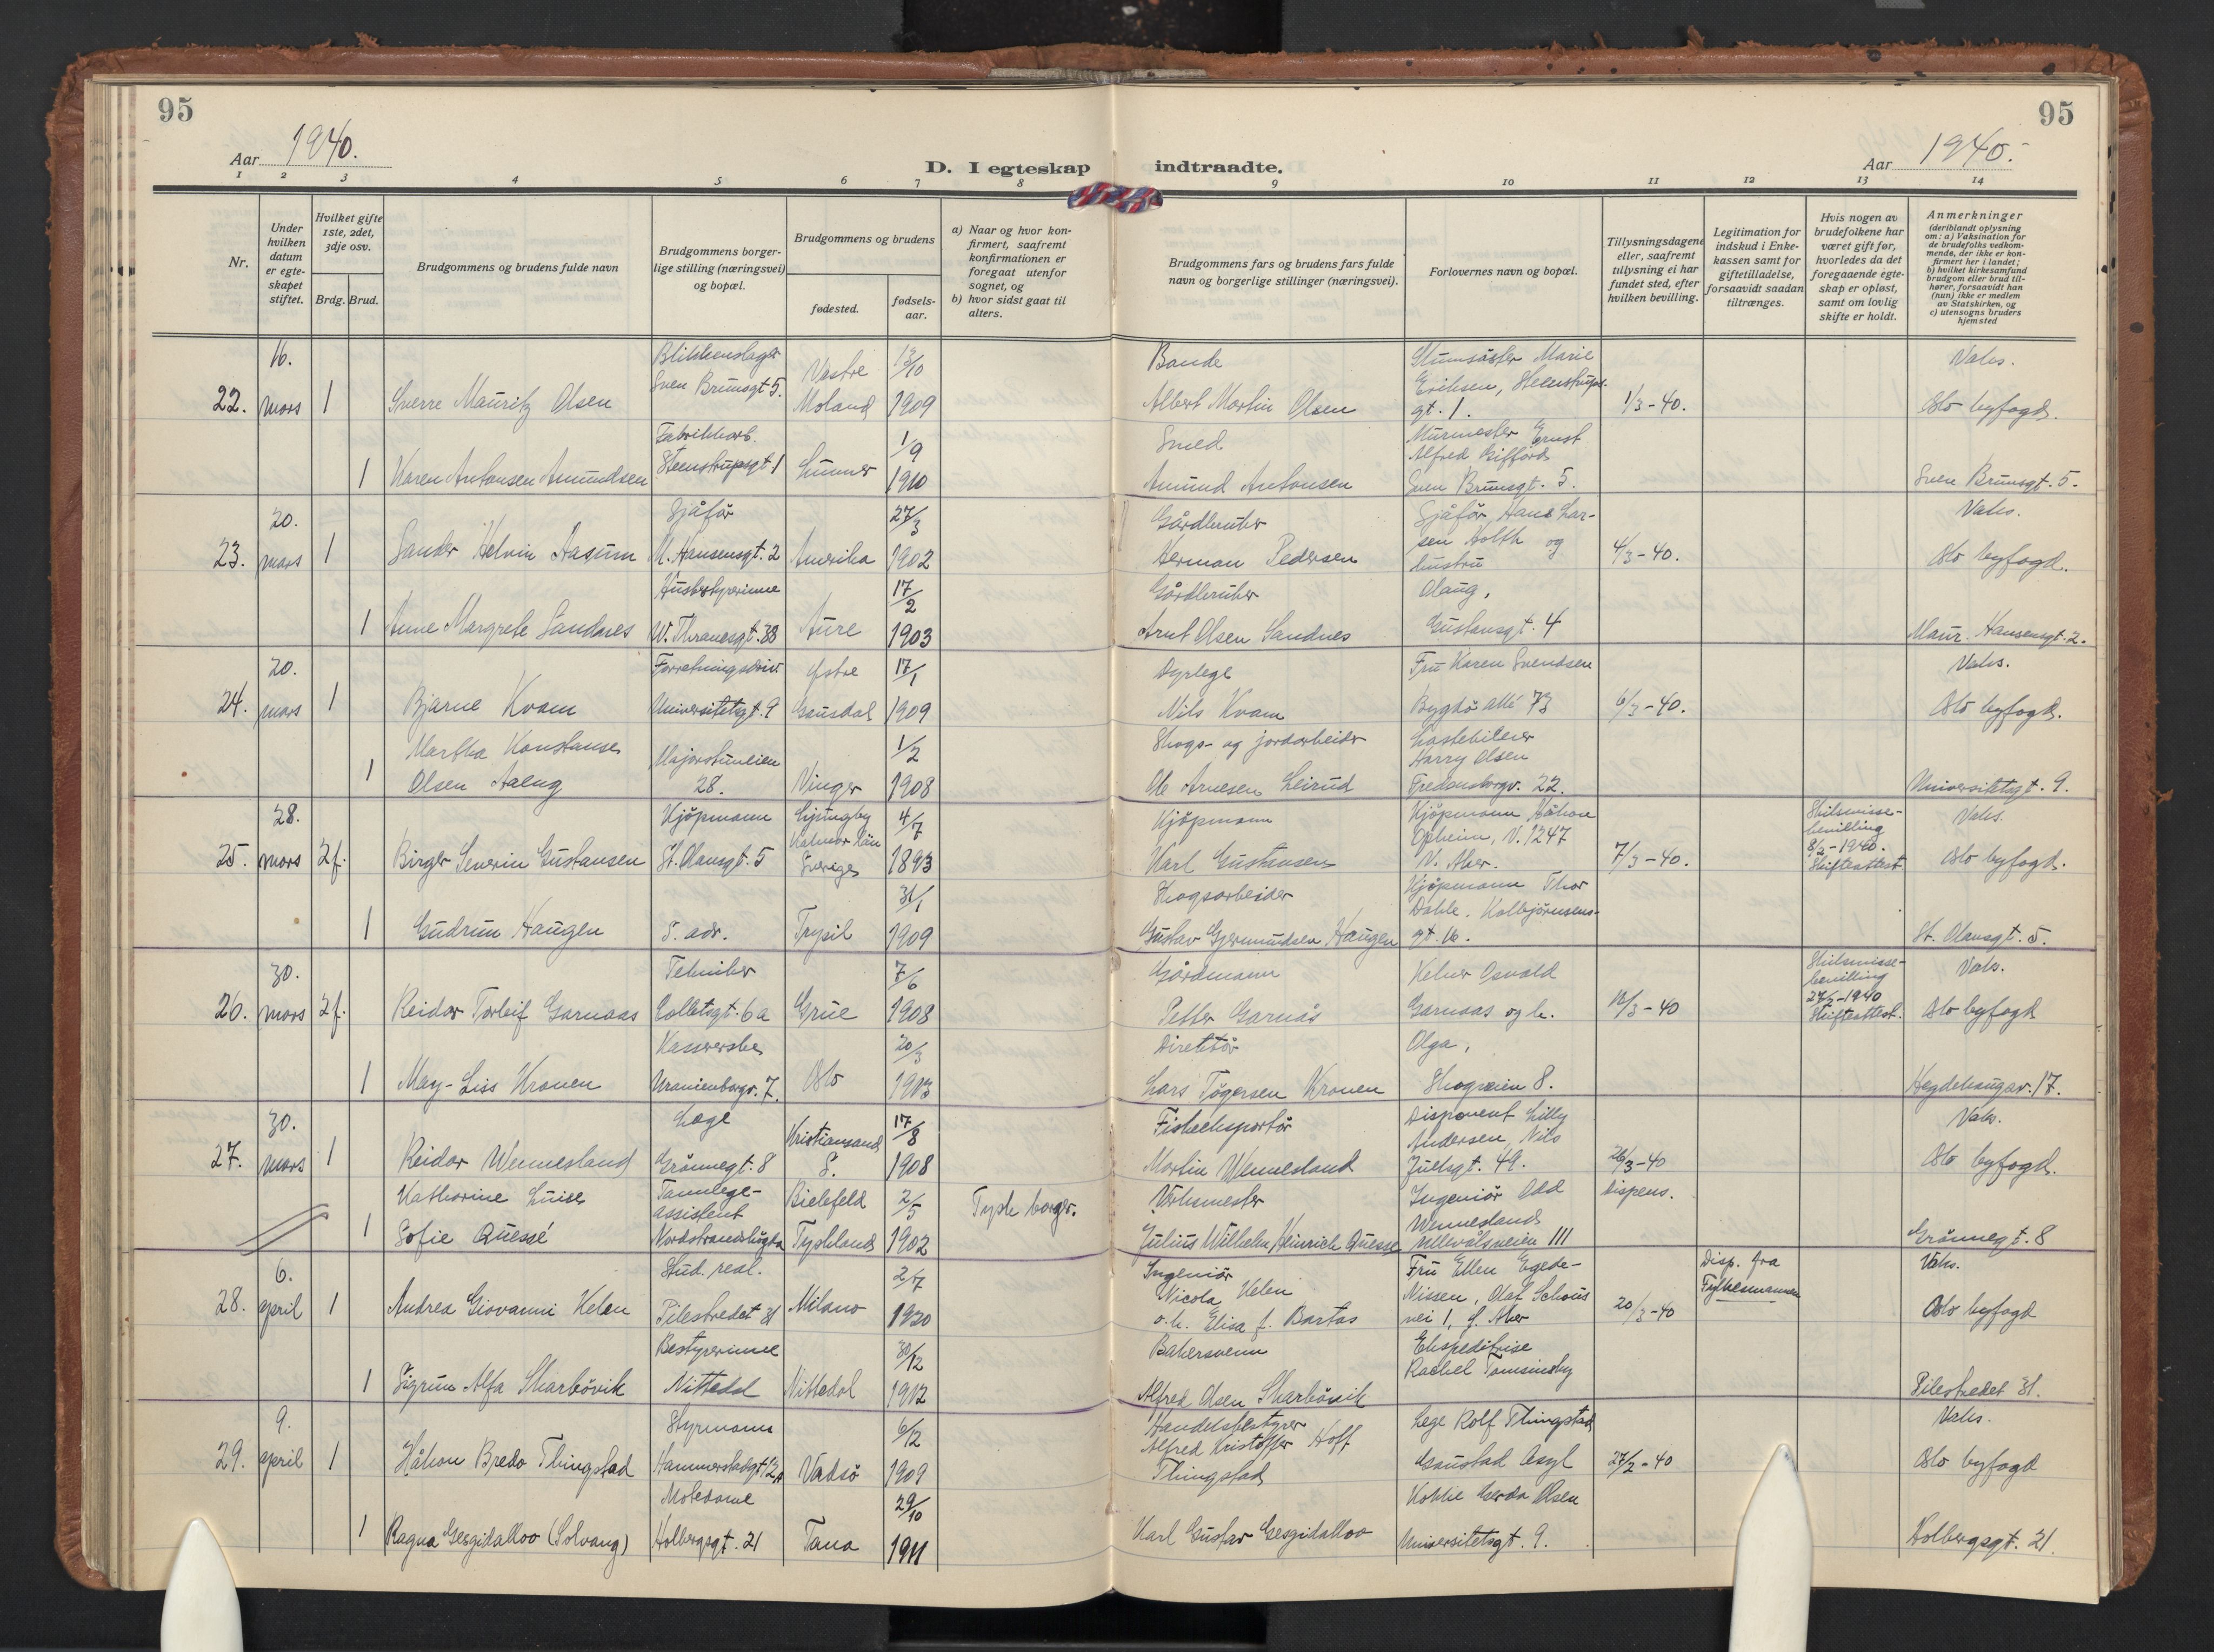 95
95
Aar 1940.
Aar 1940.
D. I egteskap indtraadte.
1 2 3 4 5 6 7 8 9 10 11 12 13 14
Nr.
Under hvilken datum er egteskapet stiftet.
Hvilket gifte 1ste, 2det, 3dje osv.
Brdg. Brud.
Brudgommens og brudens fulde navn
Brudgommens borgerlige stilling (næringsvei) og bopæl.
Brudgommens og brudens
fødested.
fødselsaar.
a) Naar og hvor konfirmert, saafremt konfirmationen er foregaat utenfor sognet, og
b) hvor sidst gaat til alters.
Brudgommens fars og brudens fars fulde navn og borgerlige stillinger (næringsvei).
Forlovernes navn og bopæl.
Tillysningsdagene eller, saafremt tillysning ei har fundet sted, efter hvilken bevilling.
Legitimation for indskud i Enkekassen samt for giftetilladelse, forsaavidt saadan tiltrænges.
Hvis nogen av brudefolkene har været gift før, hvorledes da det foregaaende egteskap er opløst, samt om lovlig skifte er holdt.
Anmerkninger
(deriblandt oplysning om: a) Vaksination for de brudefolks vedkommende, der ikke er konfirmert her i landet; b) hvilket kirkesamfund brudgom eller brud tilhører, forsaavidt han (hun) ikke er medlem av Statskirken, og c) utensogns bruders hjemsted
22. 16. mars 1 Sverre Mauritz Olsen
Blikkenslager Sven Brunsgt 5.
Vestre Moland 13/10 1909
Bonde Albert Martin Olsen
Marie Eriksen, Steenstrupsgt. 1.
1/3-40.
Vaks.
Oslo byfogd.
1 Karen Antonsen Amundsen
Fabrikkarb. Steenstrupsgt 1
Lunner 1/9 1910
Smed Amund Antonsen
Murmester Ernst Alfred Gifford
Sven Brunsgt. 5.
Sven Brunsgt. 5.
23. 20. mars 1 Sander Helvin Aasum
Sjåfør M. Hansensgt. 2
Amerika 27/3 1902
Gårdbruker Herman Pedersen
Sjåfør Hans Larsen Holth og hustru
4/3-40.
Vaks.
Oslo byfogd.
1 Anne Margrete Sandnes
Husbestyrerinne W. Thranesgt. 38
Aure 17/2 1903
Gårdbruker Arnt Olsen Sandnes
Olaug, Gustavsgt. 4
Maur. Hansensgt. 2.
24. 20. mars 1 Bjarne Kvam
Forretningsdriv. Universitetsgt. 9
Østre Gausdal 17/1 1909
Dyrlege Nils Kvam
Fru Karen Svendsen
Bygdö allé 73
6/3-40.
Vaks.
Oslo byfogd.
1 Martha Konstanse Olsen Aaeng
Majorstuveien 28.
Vinger 1/2 1908
Skogs- og jordarbeider Ole Arnesen Leirud
Lastebileier Harry Olsen
Fredensborgv. 22.
Universitetsgt. 9.
25. 28. mars 2 f. Birger Severin Gustavsen
Kjøpmann St. Olavsgt. 5
Ljungby Kalmar län Sverige 4/7 1893
Kjøpmann Karl Gustavsen
Kjøpmann Håkon Opheim, V. 1247 V. Aker.
7/3-40.
Skilsmissebevilling 8/2-1940. Skifteattest
Vaks.
Oslo byfogd.
1 Gudrun Haugen
S. adr.
Trysil 31/1 1909
Skogsarbeider Gustav Gjermundsen Haugen
Kjøpmann Thor Dahle. Kolbjørnsensgt. 16.
St. Olavsgt. 5.
26. 30. mars 2 f. Reidar Torleif Garnaas
Tekniker Colletsgt. 6a
Grue 7/6 1908
Gårdmann Petter Garnås
Kelner Osvald Garnaas og h.
12/3-40
Skilsmissebevilling 27/2-1940 Skifteattest.
Vaks.
Oslo byfogd
1 May-Liss Kronen
Kassererske Uranienborgv. 7.
Oslo 20/3 1903
Direktør Lars Tøgersen Kronen
Olga, Skogveien 8.
Hegdehaugsv. 17.
27. 30. mars 1 Reidar Wennesland
Lege Grønnegt. 8
Kristiansand S. 17/8 1908
Fiskeeksportør Martin Wennesland
Disponent Lilly Andersen, Nils Juelsgt. 49.
26/3-40 Dispens.
Vaks.
Oslo byfogd.
1 Katharine Luise Sofie Quessé
Tannlegeassistent Nordstrandshøgda
Bielefeld Tyskland 2/5 1902
Tysk borger.
Verksmester Julius Wilhelm Heinrich Quesse
Ingeniør Odd Wennesland Ullevålsveien 111
Grønnegt. 8
28. 6. april 1 Andrea Giovanni Kelen
Stud. real. Pilestredet 31
Milano 2/7 1920
Ingeniør Nicola Kelen o. h. Elisa f. Bartos
Fru Ellen Egede-Nissen, Olaf Schous vei 1, Ø. Aker
20/3-40
Disp. fra Fylkesmannen
Vaks.
Oslo byfogd
1 Sigrun Alfa Skarbövik
Bestyrerinne Nittedal
Nittedal 30/12 1912
Bakersvenn Alfred Olsen Skarbövik
Ekspeditrise Rachel Tomsinsky
Pilestredet 31.
29. 9. april 1 Håkon Bredo Thingstad
Styrmann Hammerstadgt 12A
Vadsö 6/12 1909
Handelsbestyrer Alfred Kristoffer Hoff Thingstad
Lege Rolf Thingstad Gaustad Asyl
27/2-40
Vaks.
Oslo byfogd
1 Ragna Gesgidalloo (Solvang)
Motedame Holbergsgt. 21
Tana 29/10 1911
Karl Gustav Gesgidalloo
Gerda Olsen Universitetsgt. 9.
Holbergsgt. 21.